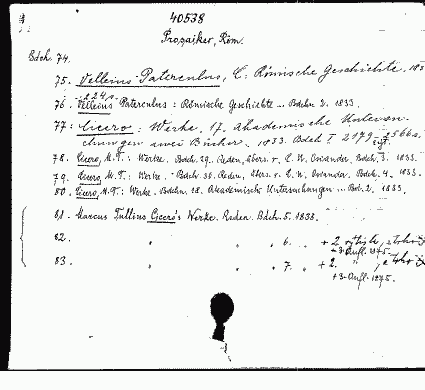 40538
Prozaiker, Röm.
Bdch. 74.
75. Velleius Paterculus, C: Römische Geschichte. 183
224 s.
76. Velleius Paterculus: Römische Geschichte... Bdchn 2. 1833.
77: Cicero: Werke. 17. Akademische Untersu-
chungen zwei Bücher. 1833. Bdch I. 2179-2566 s.
78. Cicero, M. T.: Werke. Bdch. 29. Reden, übers. v. C. N. Osiander. Bdch. 3. 1833.
79. Cicero, M. T.: Werke. Bdch. 30. Reden, übers. v. C. N. Osiander. Bdch. 4. 1833.
80. Cicero, M. T: Werke. Bdchn. 18. Akademische Untersuchungen ... Bd. 2. 1833.
81. Marcus Tullius Cicero's Werke. Reden. Bdch. 5. 1833.
82. " " " 6. " + 2
+3. Aufl. 1875.
83. " " " 7. " + 2. "
+3. Aufl. 1875.